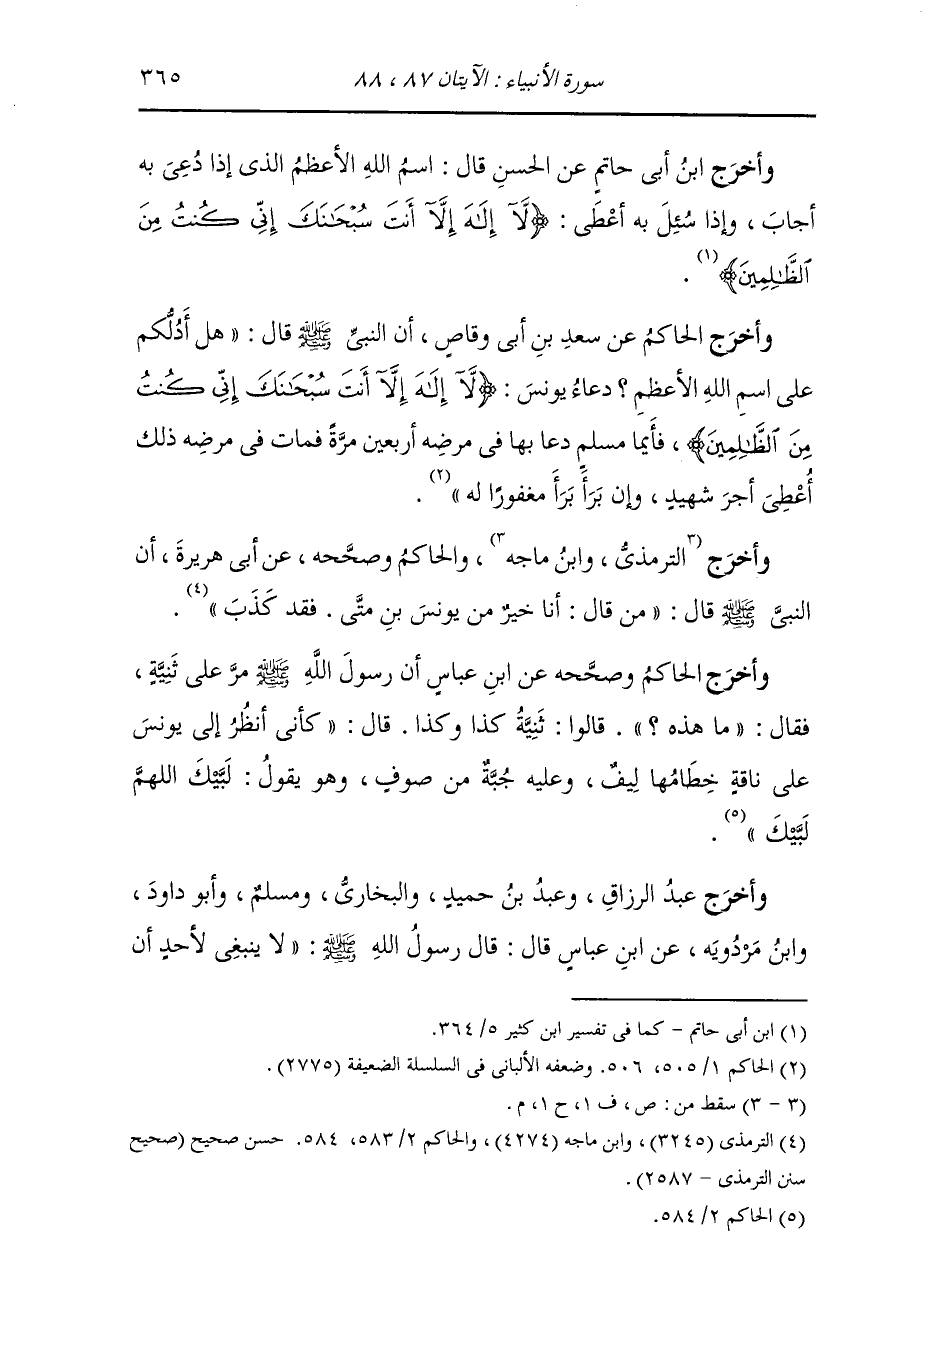 سورة الأنبياء : الآيتان ٨٧ ، ٨٨ ٣٦٥
وأخرَج ابنُ أبى حاتمٍ عن الحسنِ قال : اسمُ اللهِ الأعظمُ الذى إذا دُعِىَ به
أجابَ ، وإذا سُئِلَ به أعْطَى : ﴿لَّآ إِلَٰهَ إِلَّآ أَنتَ سُبْحَٰنَكَ إِنِّي كُنتُ مِنَ
ٱلظَّٰلِمِينَ﴾(١) .
وأخرَج الحاكمُ عن سعدِ بنِ أبى وقاصٍ ، أن النبىِّ ﷺ قال : « هل أَدُلُّكم
على اسمِ اللهِ الأعظمِ ؟ دعاءُ يونسَ : ﴿لَّآ إِلَٰهَ إِلَّآ أَنتَ سُبْحَٰنَكَ إِنِّي كُنتُ
مِنَ ٱلظَّٰلِمِينَ﴾ ، فأيما مسلمٍ دعا بها فى مرضِه أربعين مرَّةً فمات فى مرضِه ذلك
أُعْطِىَ أجرَ شهيدٍ ، وإن بَرَأَ بَرَأَ مغفورًا له »(٢) .
وأخرَج (٣الترمذىُّ ، وابنُ ماجه٣) ، والحاكمُ وصحَّحه ، عن أبى هريرةَ ، أن
النبىَّ ﷺ قال : « من قال : أنا خيرٌ من يونسَ بنِ متَّى . فقد كَذَبَ »(٤) .
وأخرَج الحاكمُ وصحَّحه عن ابنِ عباسٍ أن رسولَ اللَّهِ ﷺ مرَّ على ثَنِيَّةٍ ،
فقال : « ما هذه ؟ » . قالوا : ثَنِيَّةُ كذا وكذا . قال : « كأنى أنظُرُ إلى يونسَ
على ناقةٍ خِطَامُها لِيفٌ ، وعليه جُبَّةٌ من صوفٍ ، وهو يقولُ : لَبَّيْكَ اللهمَّ
لَبَّيْكَ »(٥) .
وأخرَج عبدُ الرزاقِ ، وعبدُ بنُ حميدٍ ، والبخارىُّ ، ومسلمٌ ، وأبو داودَ ،
وابنُ مَرْدُويَه ، عن ابنِ عباسٍ قال : قال رسولُ اللهِ ﷺ : « لا ينبغِى لأحدٍ أن
(١) ابن أبى حاتم - كما فى تفسير ابن كثير ٥/ ٣٦٤.
(٢) الحاكم ١/ ٥٠٥، ٥٠٦. وضعفه الألبانى فى السلسلة الضعيفة (٢٧٧٥) .
(٣ - ٣) سقط من : ص ، ف ١، ح ١، م .
(٤) الترمذى (٣٢٤٥) ، وابن ماجه (٤٢٧٤) ، والحاكم ٢/ ٥٨٣، ٥٨٤. حسن صحيح (صحيح
سنن الترمذى - ٢٥٨٧) .
(٥) الحاكم ٢/ ٥٨٤.